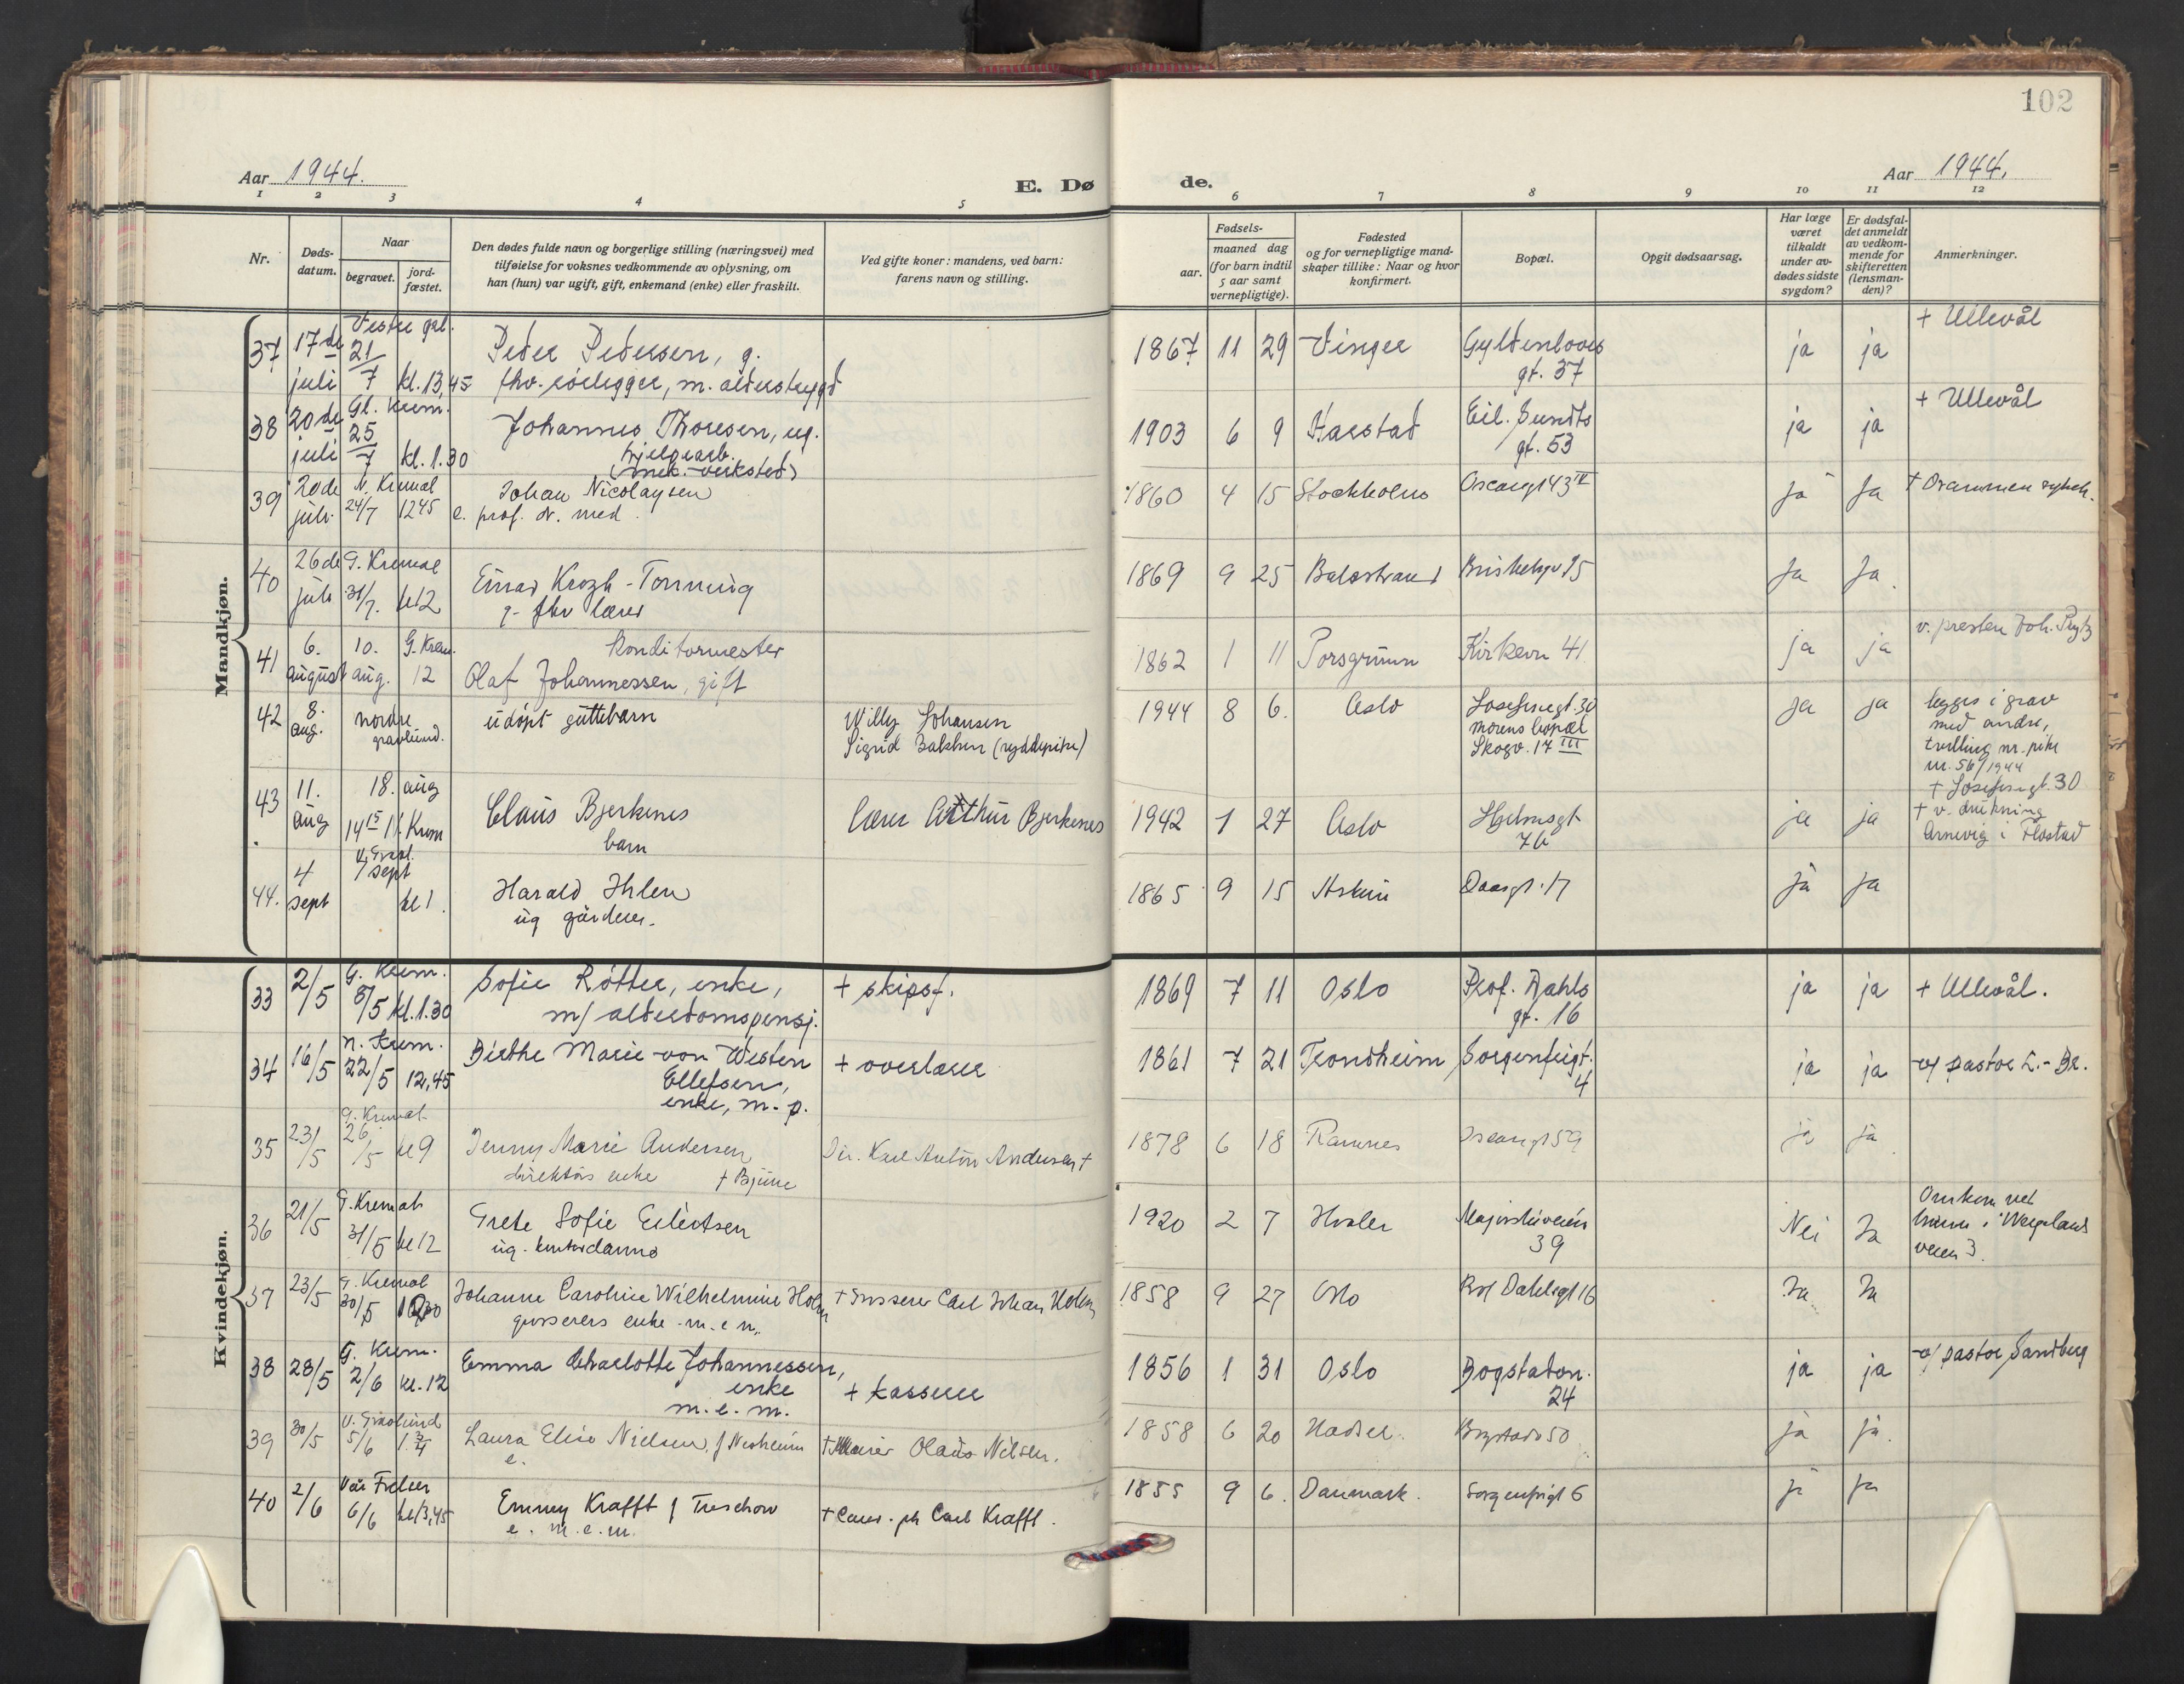 102
Aar 1944. E. Dø de. Aar 1944.
1 2 3 4 5 6 7 8 9 10 11 12
Nr.
Døds-datum.
Naar
begravet.
jord-fæstet.
Den dødes fulde navn og borgerlige stilling (næringsvei) med
tilføielse for voksnes vedkommende av oplysning, om
han (hun) var ugift, gift, enkemand (enke) eller fraskilt.
Ved gifte koner: mandens, ved barn:
farens navn og stilling.
Fødsels-
aar.
maaned dag
(for barn indtil
5 aar samt
vernepligtige).
Fødested
og for vernepligtige mand-
skaper tillike: Naar og hvor
konfirmert.
Bopæl.
Opgit dødsaarsag.
Har læge
været
tilkaldt
under av-
dødes sidste
sygdom?
Er dødsfal-
det anmeldt
av vedkom-
mende for
skifteretten
(lensman-
den)?
Anmerkninger.
Mandkjøn.
37 17de juli Vestre gal. 21/7 kl. 13,45 Peder Pedersen, g. fhv. rørlegger, m. alderstrygd 1867 11 29 Vinger Gyldenløves gt. 37 ja ja + Ullevål
38 20de juli Gl. Krem. 25/7 kl. 1.30 Johannes Thoresen, ug. hjelpearb. (mek. verksted) 1903 6 9 Harstad Eil. Sundts gt. 53 ja ja + Ullevål
39 20de juli N. Kremat 24/7 1245 Johan Nicolaysen e. prof. dr. med. 1860 4 15 Stockholm Oscarsgt 43 IV ja ja + Drammen sykeh.
40 26de juli G. Kremat 31/7. kl 12 Einar Krogh-Tonning g. fhv lærer 1869 9 25 Balestrand Briskebyv 75 Ja Ja.
41 6. august 10. aug. G. Krem. 12 konditormester Olaf Johannessen, gift 1862 1 11 Porsgrunn Kirkevn 41 ja ja v. presten Joh.
42 8. aug. nordre gravlund. udøpt guttebarn Willy Johansen Sigrid Bakken (ryddepike) 1944 8 6. Oslo Josefinegt. 30 morens bopæl Skogv. 17 III ja ja legges i grav med andre, tvilling nr. pike nr. 56/1944 + Josefinegt. 30
43 11. aug 18. aug 14 15 Krem Claus Bjerkenes barn Lærer Arthur Bjerkenes 1942 1 27 Oslo Hjelmsgt 7b ja ja + v. drukning Arnevig i Flostad
44. 4 sept V. Gravl. 7 sept kl 1. Harald Ihlen ug gårdeier. 1865 9 15 Askim Daasgt. 17 ja ja
Kvindekjøn.
33 2/5 G. Krem. 8/5 kl. 1.30 Sofie Røtter, enke, m/ alderdomspensj. + skipsf. 1869 7 11 Oslo Prof. Dahls gt. 16 ja ja + Ullevål.
34 16/5 N. Krem. 22/5 12,45 Birthe Marie von Westen Ellefsen, enke, m. p. + overlærer 1861 7 21 Trondheim Sorgenfrigt. 4 ja ja v/ pastor L.-Br.
35 23/5 G. Kremat. 26/5 kl 9 Jenny Marie Andersen direktørs enke + Bjune Dir. Karl Anton Andersen + 1878 6 18 Ramnes Oscarsgt 59 ja ja
36 21/5 G. Kremat 31/5 kl 12 Grete Sofie Eilertsen ug. kontordame 1920 2 7 Hvaler Majorstuveien 39 Nei Ja Omkom ved i Wergelands veien 3.
37 23/5 G. Kremat 30/5 1030 Johanne Caroline Wilhelmine Holm grosserers enke m. e n. + Grosserer Carl Johan Holm 1858 9 27 Oslo Prof Dahlsgt 16 Ja Ja
38 28/5 G. Krem. 2/6 kl. 12 Emma Charlotte Johannessen, enke m. e. m. + kasserer 1856 1 31 Oslo Bogstadvn. 24 ja ja v/ pastor Sandberg
39 30/5 V. Gravlund 5/6 1.3/4 Laura Elise Nielsen, f Nesheim e. + Murer Olaus Nilsen. 1858 6 20 Hadsel. Bogstadv 50 ja ja.
40 2/6 Vår Frelser 6/6 kl 13,45 Emmy Krafft f Treschow e. m. e. m. + Cand. ph Carl Krafft. 1855 9 6. Danmark. Sorgenfrigt 6 ja ja